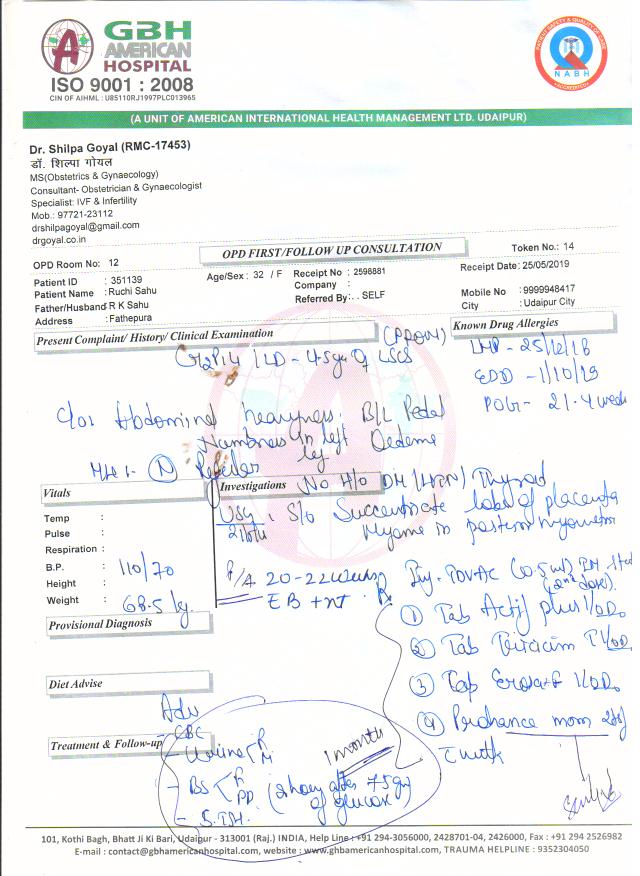 GBH
AMERICAN
HOSPITAL
ISO 9001 : 2008
CIN OF AIHML : U85110RJ1997PLC013965
PATIENT SAFETY & QUALITY OF CARE
NABH
(A UNIT OF AMERICAN INTERNATIONAL HEALTH MANAGEMENT LTD. UDAIPUR)
Dr. Shilpa Goyal (RMC-17453)
डॉ. शिल्पा गोयल
MS(Obstetrics & Gynaecology)
Consultant- Obstetrician & Gynaecologist
Specialist: IVF & Infertility
Mob.: 97721-23112
drshilpagoyal@gmail.com
drgoyal.co.in
OPD FIRST/FOLLOW UP CONSULTATION
OPD Room No: 12 Token No.: 14
Patient ID : 351139 Age/Sex : 32 / F Receipt No : 2598881 Receipt Date: 25/05/2019
Patient Name : Ruchi Sahu Company :
Father/Husband R K Sahu Referred By: . . SELF Mobile No : 9999948417
Address : Fathepura City : Udaipur City
Present Complaint/ History/ Clinical Examination Known Drug Allergies
G2P1L1 LD - 4.5 LSCS
LMP - 25/12/18
EDD - 1/10/19
POG - 21.4 week
c/o Abdominal heavyness. B/L Pedal
Numbness in left Oedema
leg
MH - (N) Regular
Vitals Investigations No H/o DM/HTN/Thyroid
USG S/o Succenturiate lobe of placenta
Myoma in posterior myometrium
Temp :
Pulse :
Respiration :
B.P. : 110/70
Height :
Weight : 68.5 kg
P/A 20-22 weeks
Inj. TDVAC (0.5 ml) IM
(2nd dose)
Provisional Diagnosis
① Tab plus 1/OD.
② Tab 1/OD
③ Tab 1/OD.
④ Prohance mom
c milk
Diet Advise
Adv
- CBC
Treatment & Follow-up
- Urine R/M
1 month
- BS F/PP (2 hour after 75 gm of glucose)
- S. TSH.
101, Kothi Bagh, Bhatt Ji Ki Bari, Udaipur - 313001 (Raj.) INDIA, Help Line : +91 294-3056000, 2428701-04, 2426000, Fax : +91 294 2526982
E-mail : contact@gbhamericanhospital.com, website : www.gbhamericanhospital.com, TRAUMA HELPLINE : 9352304050